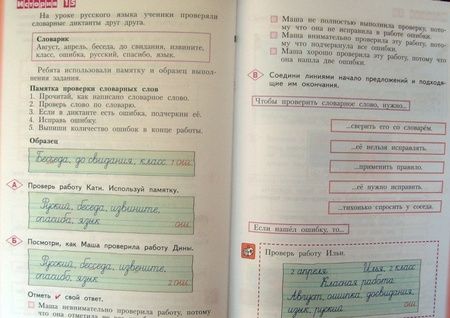 История 15
На уроке русского языка ученики проверяли
словарные диктанты друг друга.
Словарик
Август, апрель, беседа, до свидания, извините,
класс, ошибка, русский, спасибо, язык.
Ребята использовали памятку и образец выпол-
нения задания.
Памятка проверки словарных слов
1. Прочитай, как написано словарное слово.
2. Проверь слово по словарю.
3. Если в диктанте есть ошибка, подчеркни её.
4. Исправь ошибку.
5. Выпиши количество ошибок в конце работы.
Образец
Бесседа, до свидания, класс 1 ош.
А Проверь работу Кати. Используй памятку.
Руский, беседа, извините,
спасиба, язык ош.
Б Посмотри, как Маша проверила работу Дины.
Руский, беседа, извените,
спасибо, язык 2 ош.
Отметь ✔ свой ответ.
Маша невнимательно проверила работу, потому
что она отметила не
Маша не полностью выполнила проверку, пото-
му что она не исправила в работе ошибки.
Маша внимательно проверила эту работу, пото-
му что подчеркнула все ошибки.
Маша хорошо проверила эту работу, потому что
она нашла две ошибки.
В Соедини линиями начало предложений и подходя-
щие им окончания.
Чтобы проверить словарное слово, нужно...
...сверить его со словарём.
...её нельзя исправлять.
...применить правило.
...её нужно исправить.
...тихонько спросить у соседа.
Если нашёл ошибку, то...
Проверь работу Ильи.
2 апреля Илья, 2 класс
Класная работа
Август, ошипка, досвидания,
изык, руский ош.